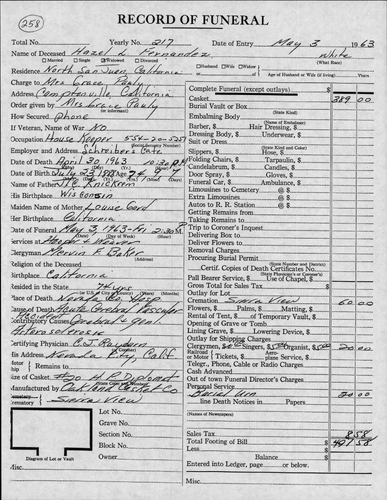 258
RECORD OF FUNERAL
Total No. Yearly No. 217 Date of Entry May 3 1963
Name of Deceased Hazel L. Fernandez White
Single Married Widowed Divorced (What Race)
Residence North San Juan, California Husband Wife Widow of
Charge to Mrs Grace Pauly Age of Husband or Wife (if living) Years
Address Comptonville California
Order given by Mrs Grace Pauly
How Secured phone
If Veteran, War of No
Occupation House Keeper 554-20-5251
Employer Schreibers Cafe
Date of Death April 30 1963 10:30 P.M.
Date of Birth July 23 1888 Age 74 9 7
Name of Father J.C. Knickrem
His Birthplace Wisconsin
Maiden Name of Mother Louise Cord
Her Birthplace California
Date of Funeral May 3, 1963-Fri 2:30 P.M.
Services at Hooper & Weaver
Clergyman Mervin F. Baker
Religion of the Deceased
Birthplace California
Resided in the State 74 yrs
(or U.S. or City or County) (Years) (Months)
Place of Death Nevada Co. Hosp
Cause of Death Acute Cerebral Vascular
Accident
Contributory Causes Cerebral & Gen.
Arterosclerosis
Certifying Physician C.J. Rayburn
His Address Nevada City, Calif.
Remains to
Size of Casket #20 H.P. Diplomat
Manufactured by Oakland Casket Co
Cemetery
Crematory Sierra View
Lot No.
Grave No.
Section No.
Block No.
Owner
Diagram of Lot or Vault
Misc.
Complete Funeral (except outlays) $
Casket 389 00
Burial Vault or Box
(State Kind)
Embalming Body
(Name of Embalmer)
Barber, $ Hair Dressing, $
Dressing Body, $ Underwear, $
Suit or Dress
(State Kind and Color)
Slippers, $ Hose, $
Folding Chairs, $ Tarpaulin, $
Candelabrum, $ Candles, $
Door Spray, $ Gloves, $
Funeral Car, $ Ambulance, $
Limousines to Cemetery @ $
Extra Limousines @ $
Autos to R. R. Station @ $
Getting Remains from
Taking Remains to
Trip to Coroner's Inquest
Delivering Box to
Deliver Flowers to
Removal Charges
Procuring Burial Permit
(State Number and District)
Certif. Copies of Death Certificates No.
(State Physician's or Coroner's)
Pall Bearer Service, $ Use of Chapel, $
Gross Total for Sales Tax $
Outlay for Lot
Cremation Sierra View 60 00
Flowers, $ Palms, $ Matting, $
Rental of Tent, $ of Temporary Vault, $
Opening of Grave or Tomb
Lining Grave, $ Lowering Device, $
Outlay for Shipping Charges
Clergyman, $10 Singers, $5 Organist, $5.00 20 00
Railroad or Motor Tickets, $ Aeroplane Service, $
Telegr., Phone, Cable or Radio Charges
Cash Advanced
Out of town Funeral Director's Charges
Personal Service
Burial Urn 20 00
line Death Notices in Papers
(Names of Newspapers)
Sales Tax 8 58
Total Footing of Bill $ 497 58
Less
Balance $
Entered into Ledger, page or below.
Misc.